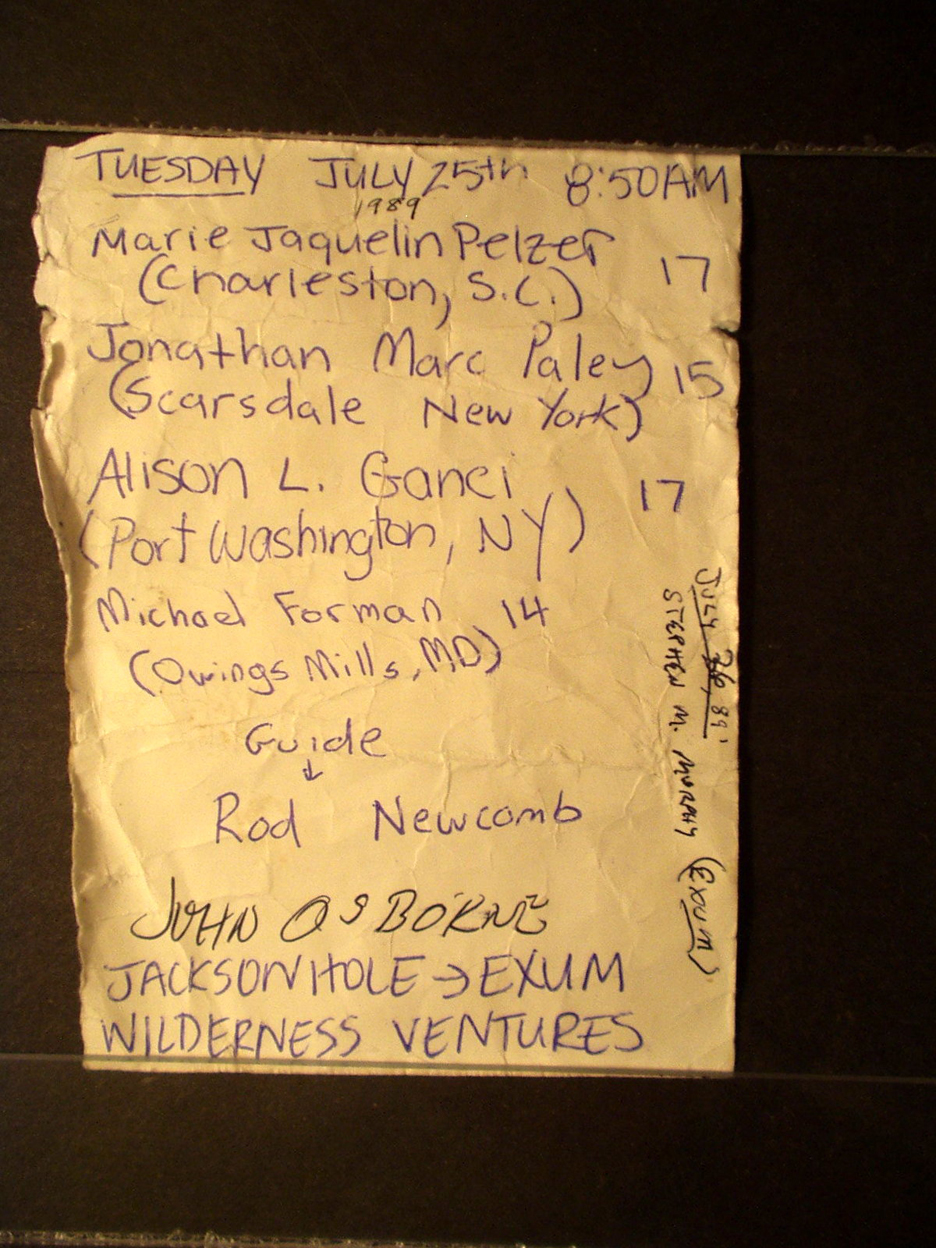 TUESDAY JULY 25th 8:50AM
1989
Marie Jaquelin Pelzer 17
(Charleston, S.C.)
Jonathan Marc Paley 15
(Scarsdale New York)
Alison L. Ganci 17
(Port Washington, NY)
Michael Forman 14
(Owings Mills, MD)
Guide
↓
Rod Newcomb
JOHN OSBORNE
JACKSON HOLE → EXUM
WILDERNESS VENTURES
JULY 26, 89'
STEPHEN M. MURPHY (EXUM)